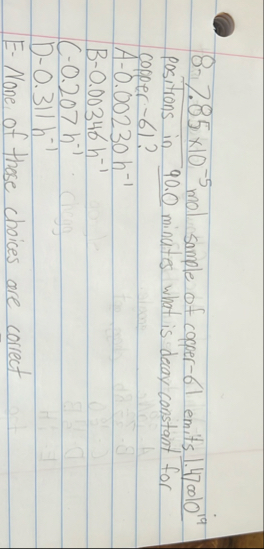 8- 7.85×10⁻⁵ mol sample of copper-61 emits 1.47×10¹⁹
positions in 90.0 minutes what is decay constant for
copper-61?
A-0.00230 h⁻¹
B-0.00346 h⁻¹
C-0.207 h⁻¹
D-0.311 h⁻¹
E- None of those choices are correct